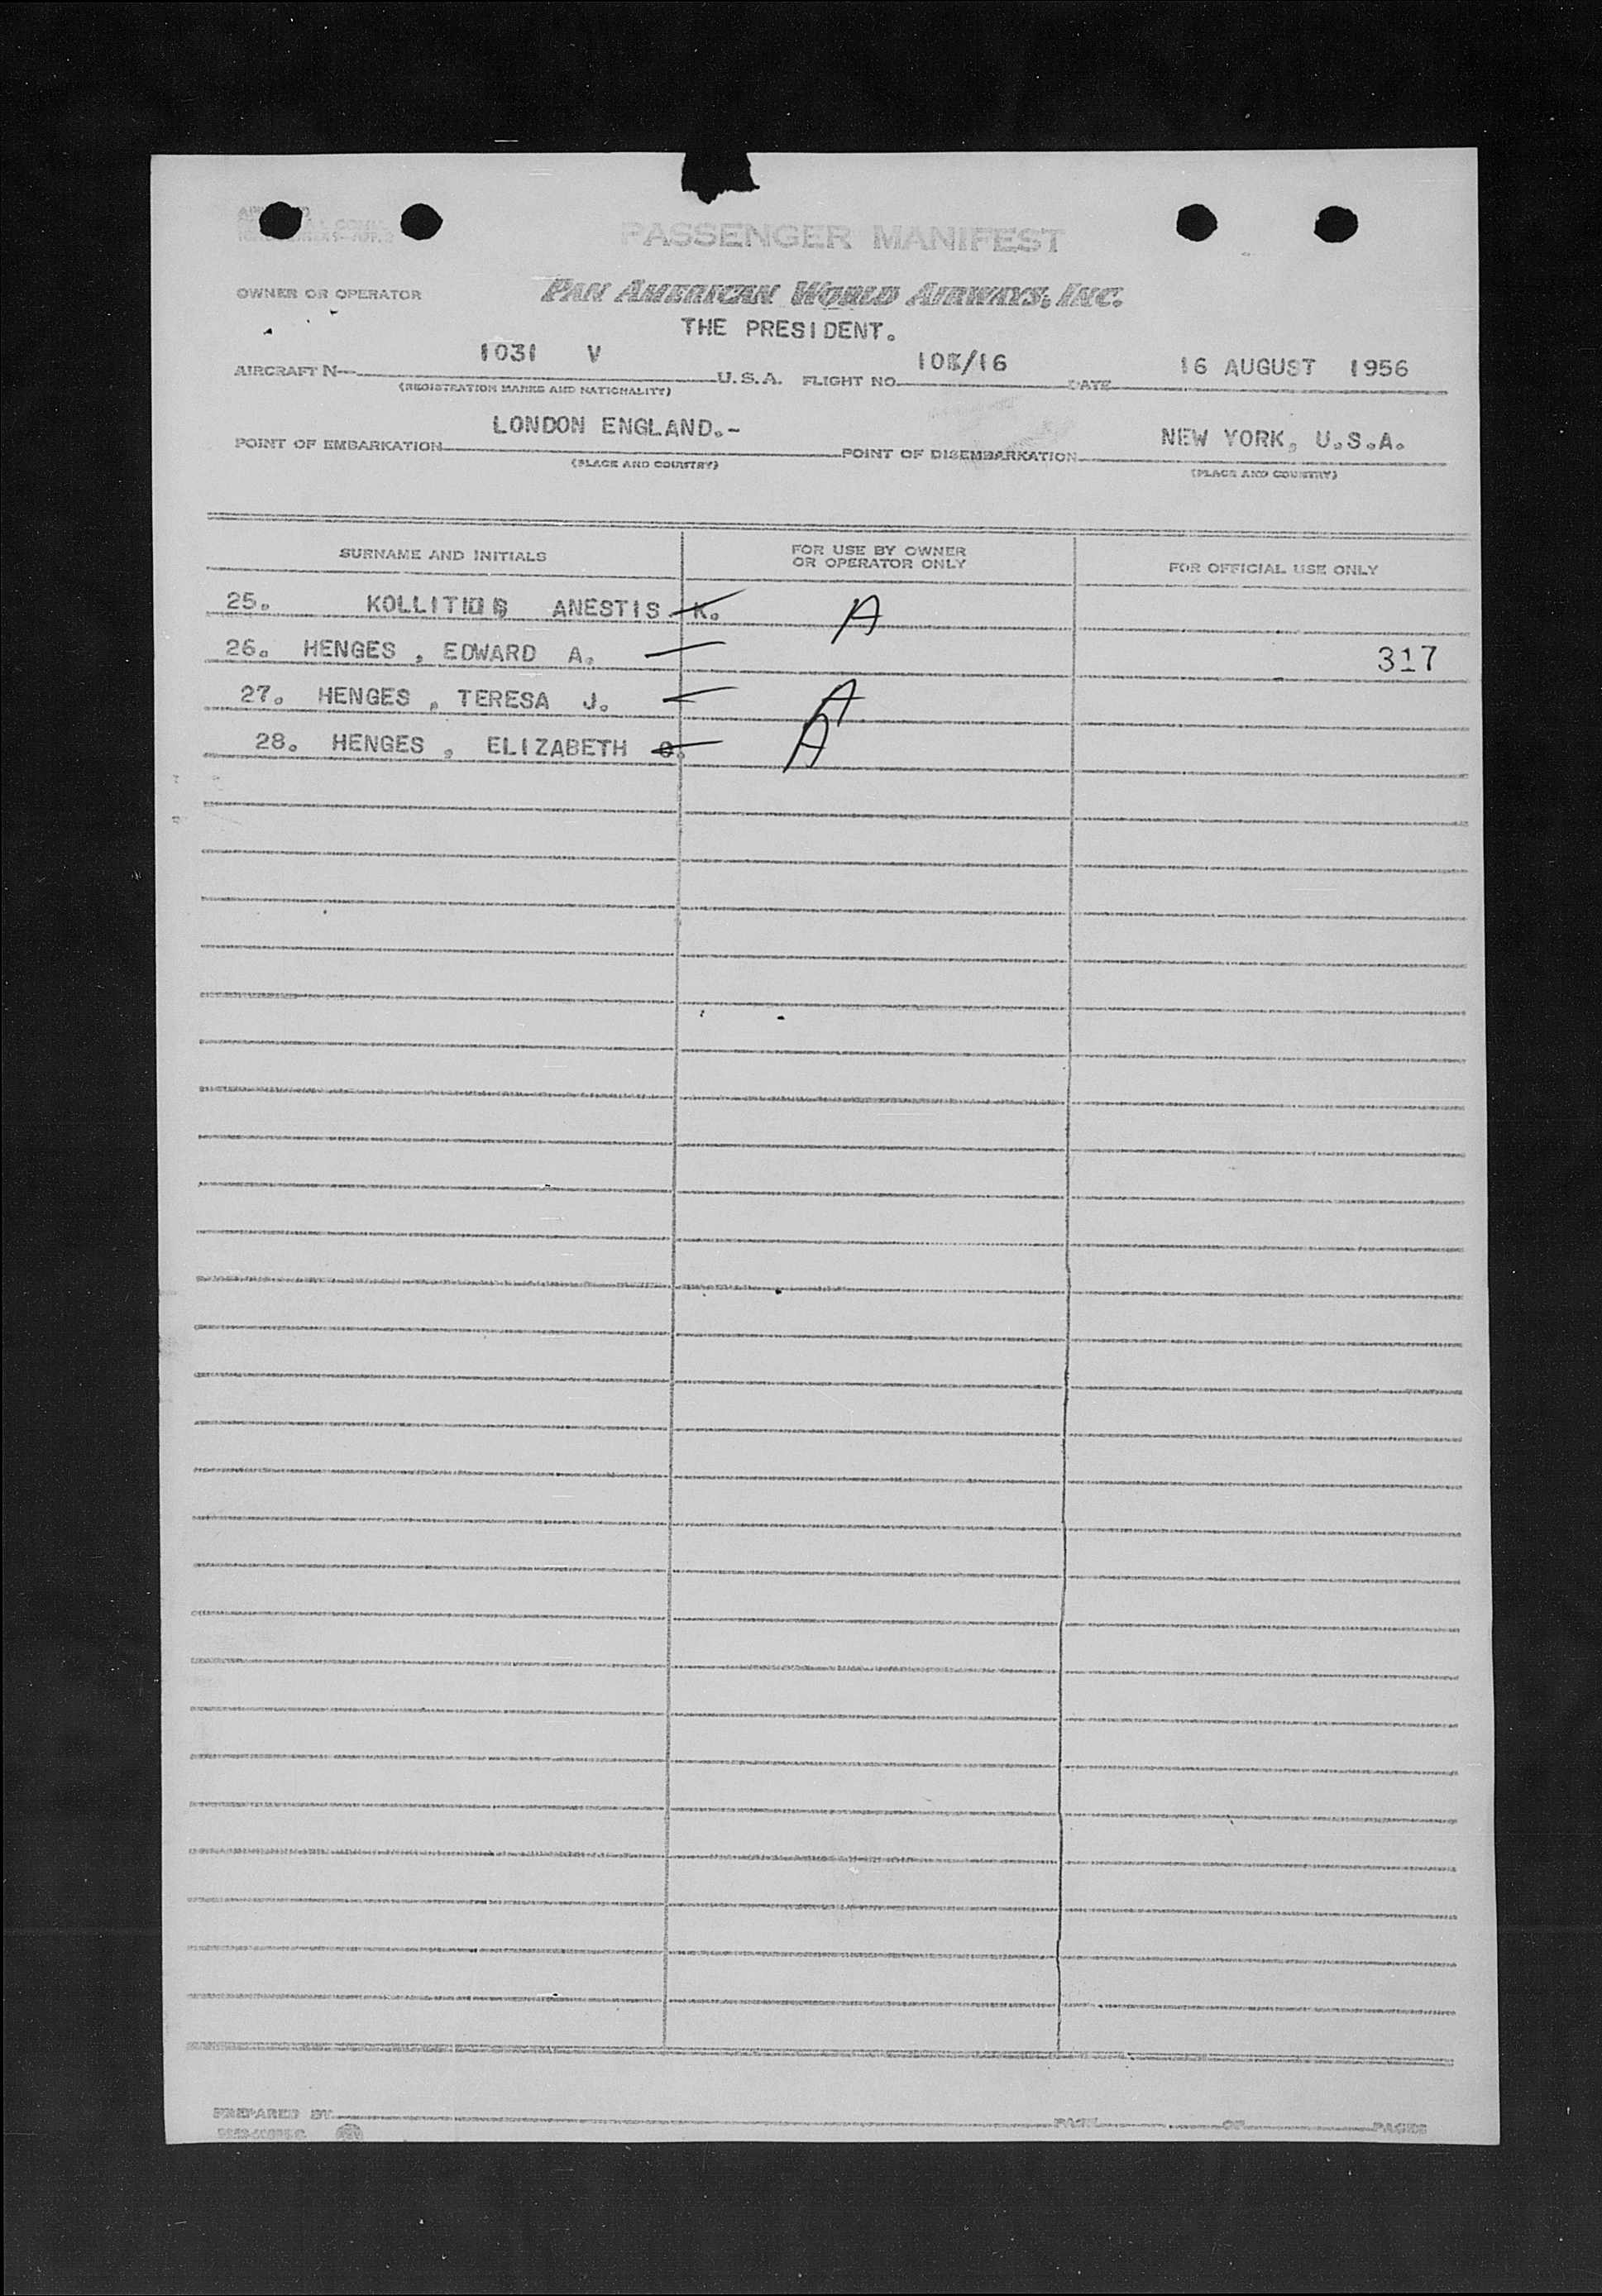 PASSENGER MANIFEST
OWNER OR OPERATOR PAN AMERICAN WORLD AIRWAYS, INC.
THE PRESIDENT.
AIRCRAFT N- 1031 V U.S.A. FLIGHT NO. /16 DATE 16 AUGUST 1956
(REGISTRATION MARKS AND NATIONALITY)
POINT OF EMBARKATION LONDON ENGLAND.- POINT OF DISEMBARKATION NEW YORK, U.S.A.
(PLACE AND COUNTRY) (PLACE AND COUNTRY)
SURNAME AND INITIALS FOR USE BY OWNER OR OPERATOR ONLY FOR OFFICIAL USE ONLY
25. ANESTIS K. A
26. HENGES , EDWARD A. 317
27. HENGES , TERESA J. A
28. HENGES , ELIZABETH A
PREPARED BY PAGE OF PAGES